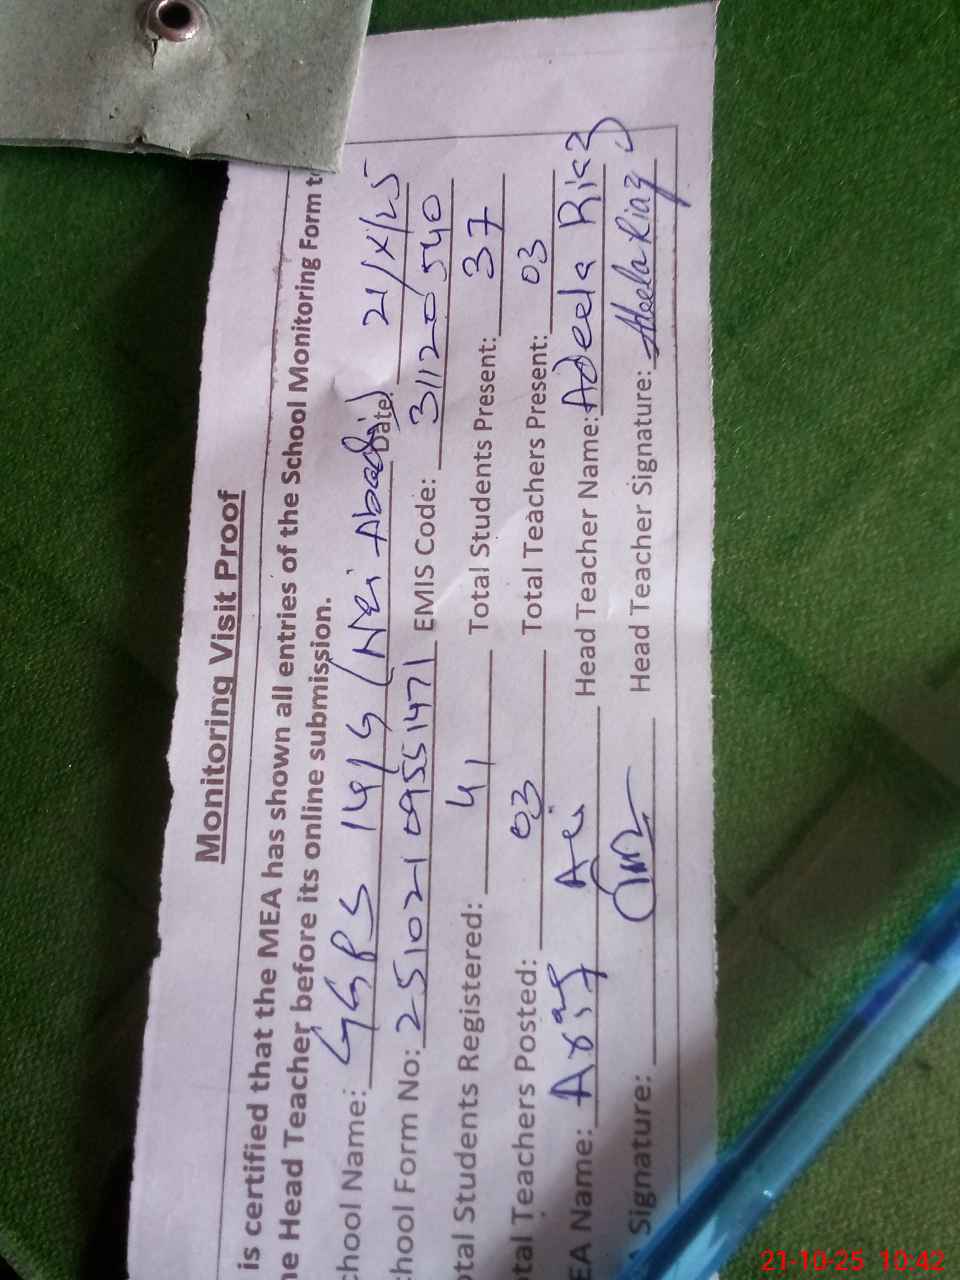 Monitoring Visit Proof
is certified that the MEA has shown all entries of the School Monitoring Form to
he Head Teacher before its online submission.
chool Name: GGPS 14/G (Nai Abadi) Date: 21/X/25
chool Form No: 25102109551471 EMIS Code: 31120540
otal Students Registered: 41 Total Students Present: 37
otal Teachers Posted: 03 Total Teachers Present: 03
EA Name: Asif Ali Head Teacher Name: Adeela Riaz
Signature: Head Teacher Signature: Adeela Riaz
21-10-25 10:42